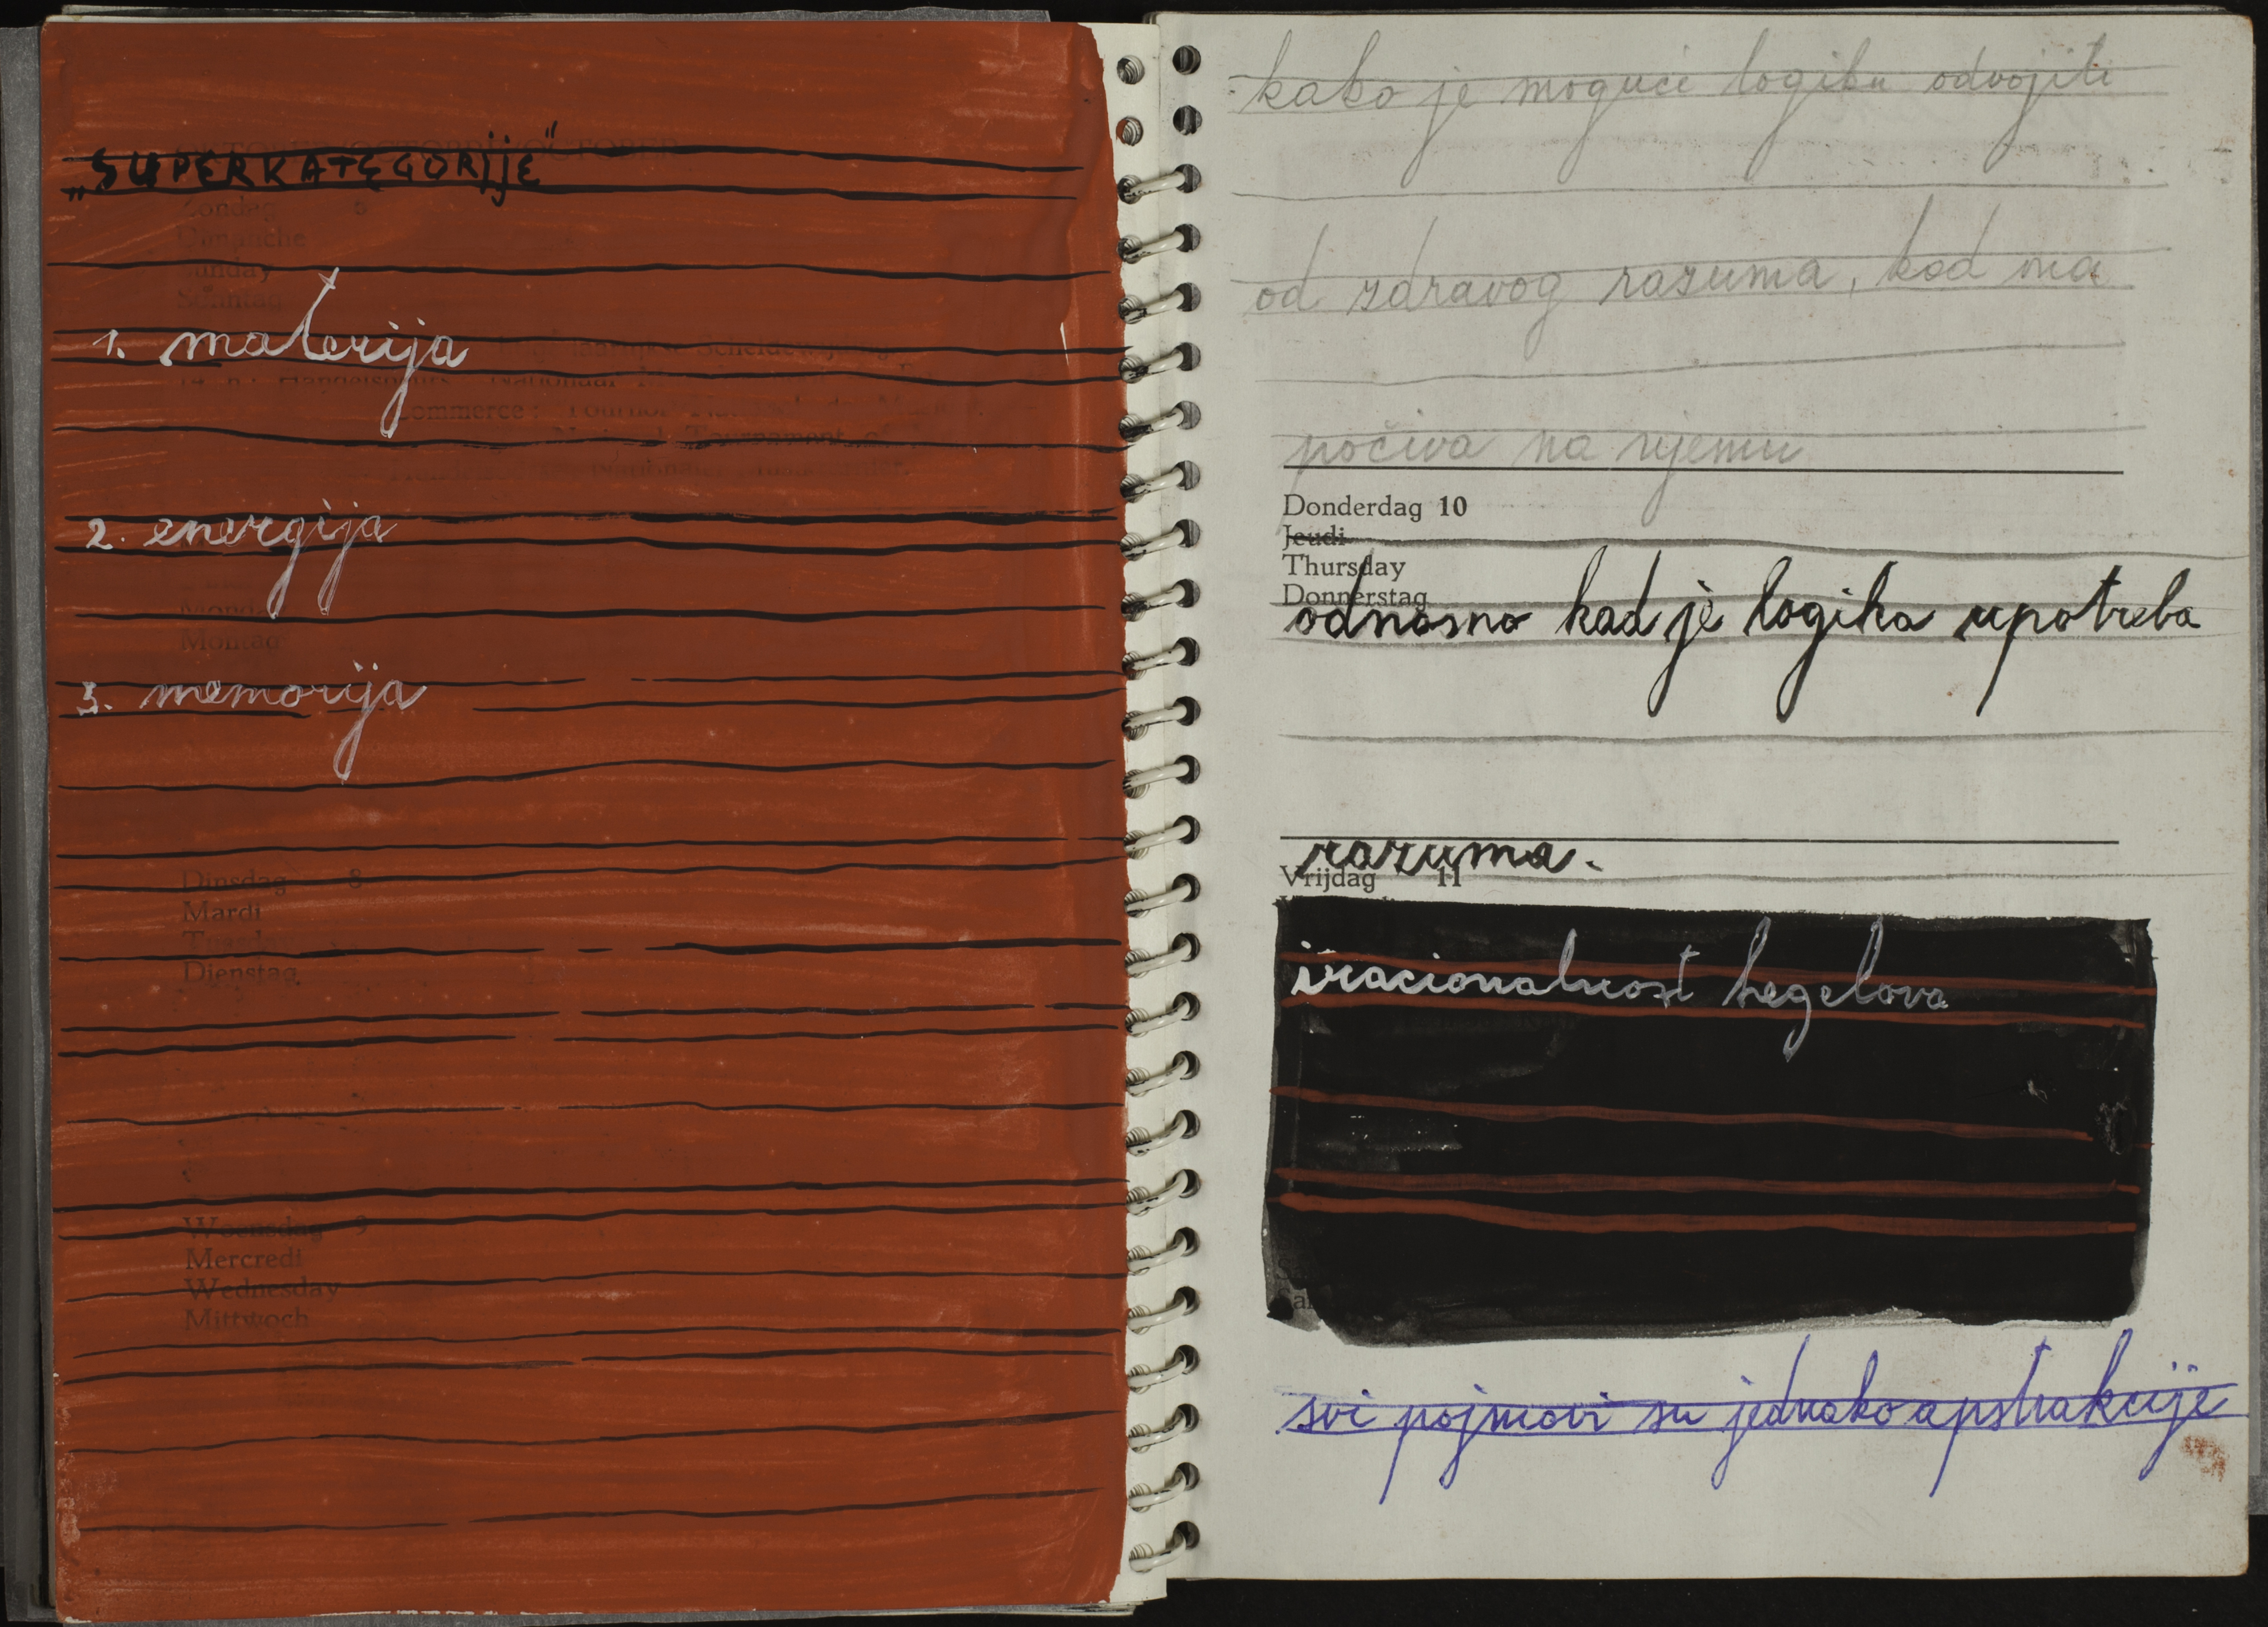 OCTOBER
„SUPERKATEGORIJE"
Zondag 6
Dimanche
Sunday
Sonntag
1. materija
Commerce: Tournoi
National Tournament of
2. energija
Monday
Montag
3. memorija
Dinsdag 8
Mardi
Tuesday
Dienstag
Woensdag 9
Mercredi
Wednesday
Mittwoch
kako je moguće logiku odvojiti
od zdravog razuma, kad ona
počiva na njemu
Donderdag 10
Jeudi
Thursday
Donnerstag
odnosno kad je logika upotreba
razuma.
Vrijdag 11
iracionalnost hegelova
svi pojmovi su jednako apstrakcije